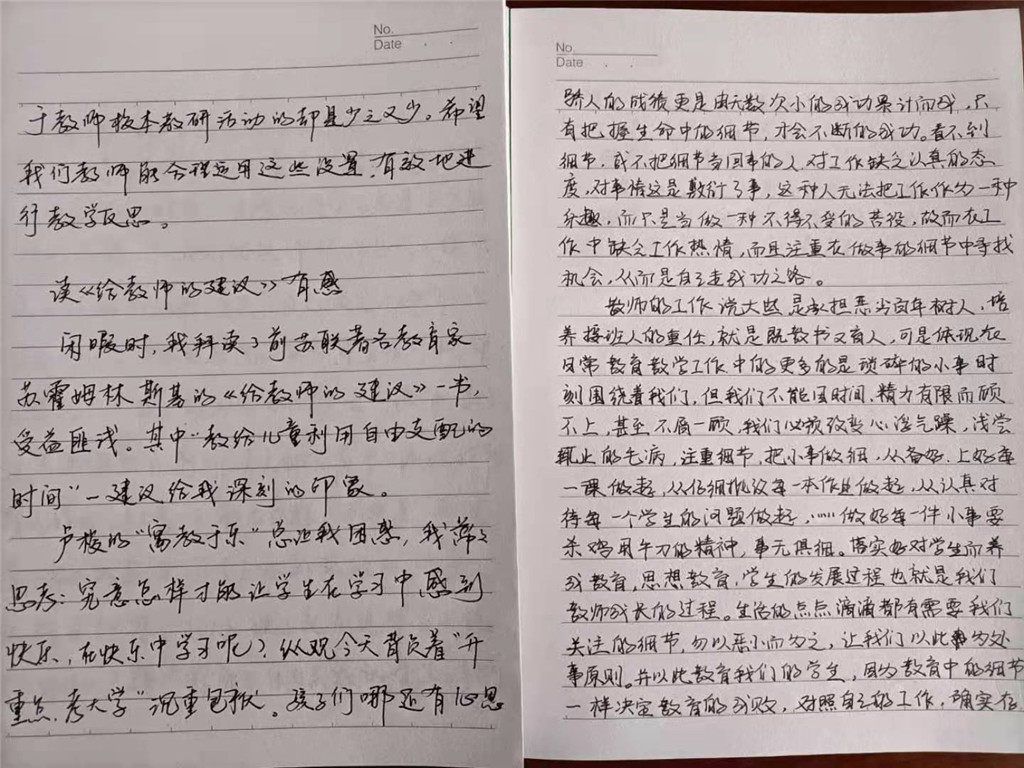 No.
Date
于教师校本教研活动的却是少之又少。希望
我们教师能合理运用这些设置,有效地进
行教学反思。
读《给教师的建议》有感
闲暇时,我拜读了前苏联著名教育家
苏霍姆林斯基的《给教师的建议》一书,
受益匪浅。其中“教给儿童利用自由支配的
时间”一建议给我深刻的印象。
卢梭的“寓教于乐”总让我困惑,我常々
思考:究竟怎样才能让学生在学习中感到
快乐,在快乐中学习呢?纵观今天背负着“升
重点,考大学”沉重包袱。孩子们哪还有心思
No.
Date
骄人的成绩更是由无数次小的成功累计而成,只
有把握生命中的细节,才会不断的成功。看不到
细节,或不把细节当回事的人,对工作缺乏认真的态
度,对事情这是敷衍了事,这种人无法把工作作为一种
乐趣,而只是当做一种不得不受的苦役,故而在工
作中缺乏工作热情,而且注重在做事的细节中寻找
机会,从而是自己走成功之路。
教师的工作说大些是承担百年树人,培
养接班人的重任,就是既教书又育人,可是体现在
日常教育教学工作中的更多的是琐碎的小事时
刻围绕着我们,但我们不能因时间、精力有限而顾
不上,甚至不屑一顾,我们必须改变心浮气躁,浅尝
辄止的毛病,注重细节,把小事做细,从备好、上好每
一课做起,从仔细批改每一本作业做起,从认真对
待每一个学生的问题做起,……做好每一件小事要
杀鸡用牛刀的精神,事无俱细。落实好对学生而养
成教育,思想教育,学生的发展过程也就是我们
教师成长的过程。生活的点点滴滴都有需要我们
关注的细节,勿以恶小而为之,让我们以此为处
事原则。并以此教育我们的学生,因为教育中的细节
一样决定教育的成败,对照自己的工作,确实存